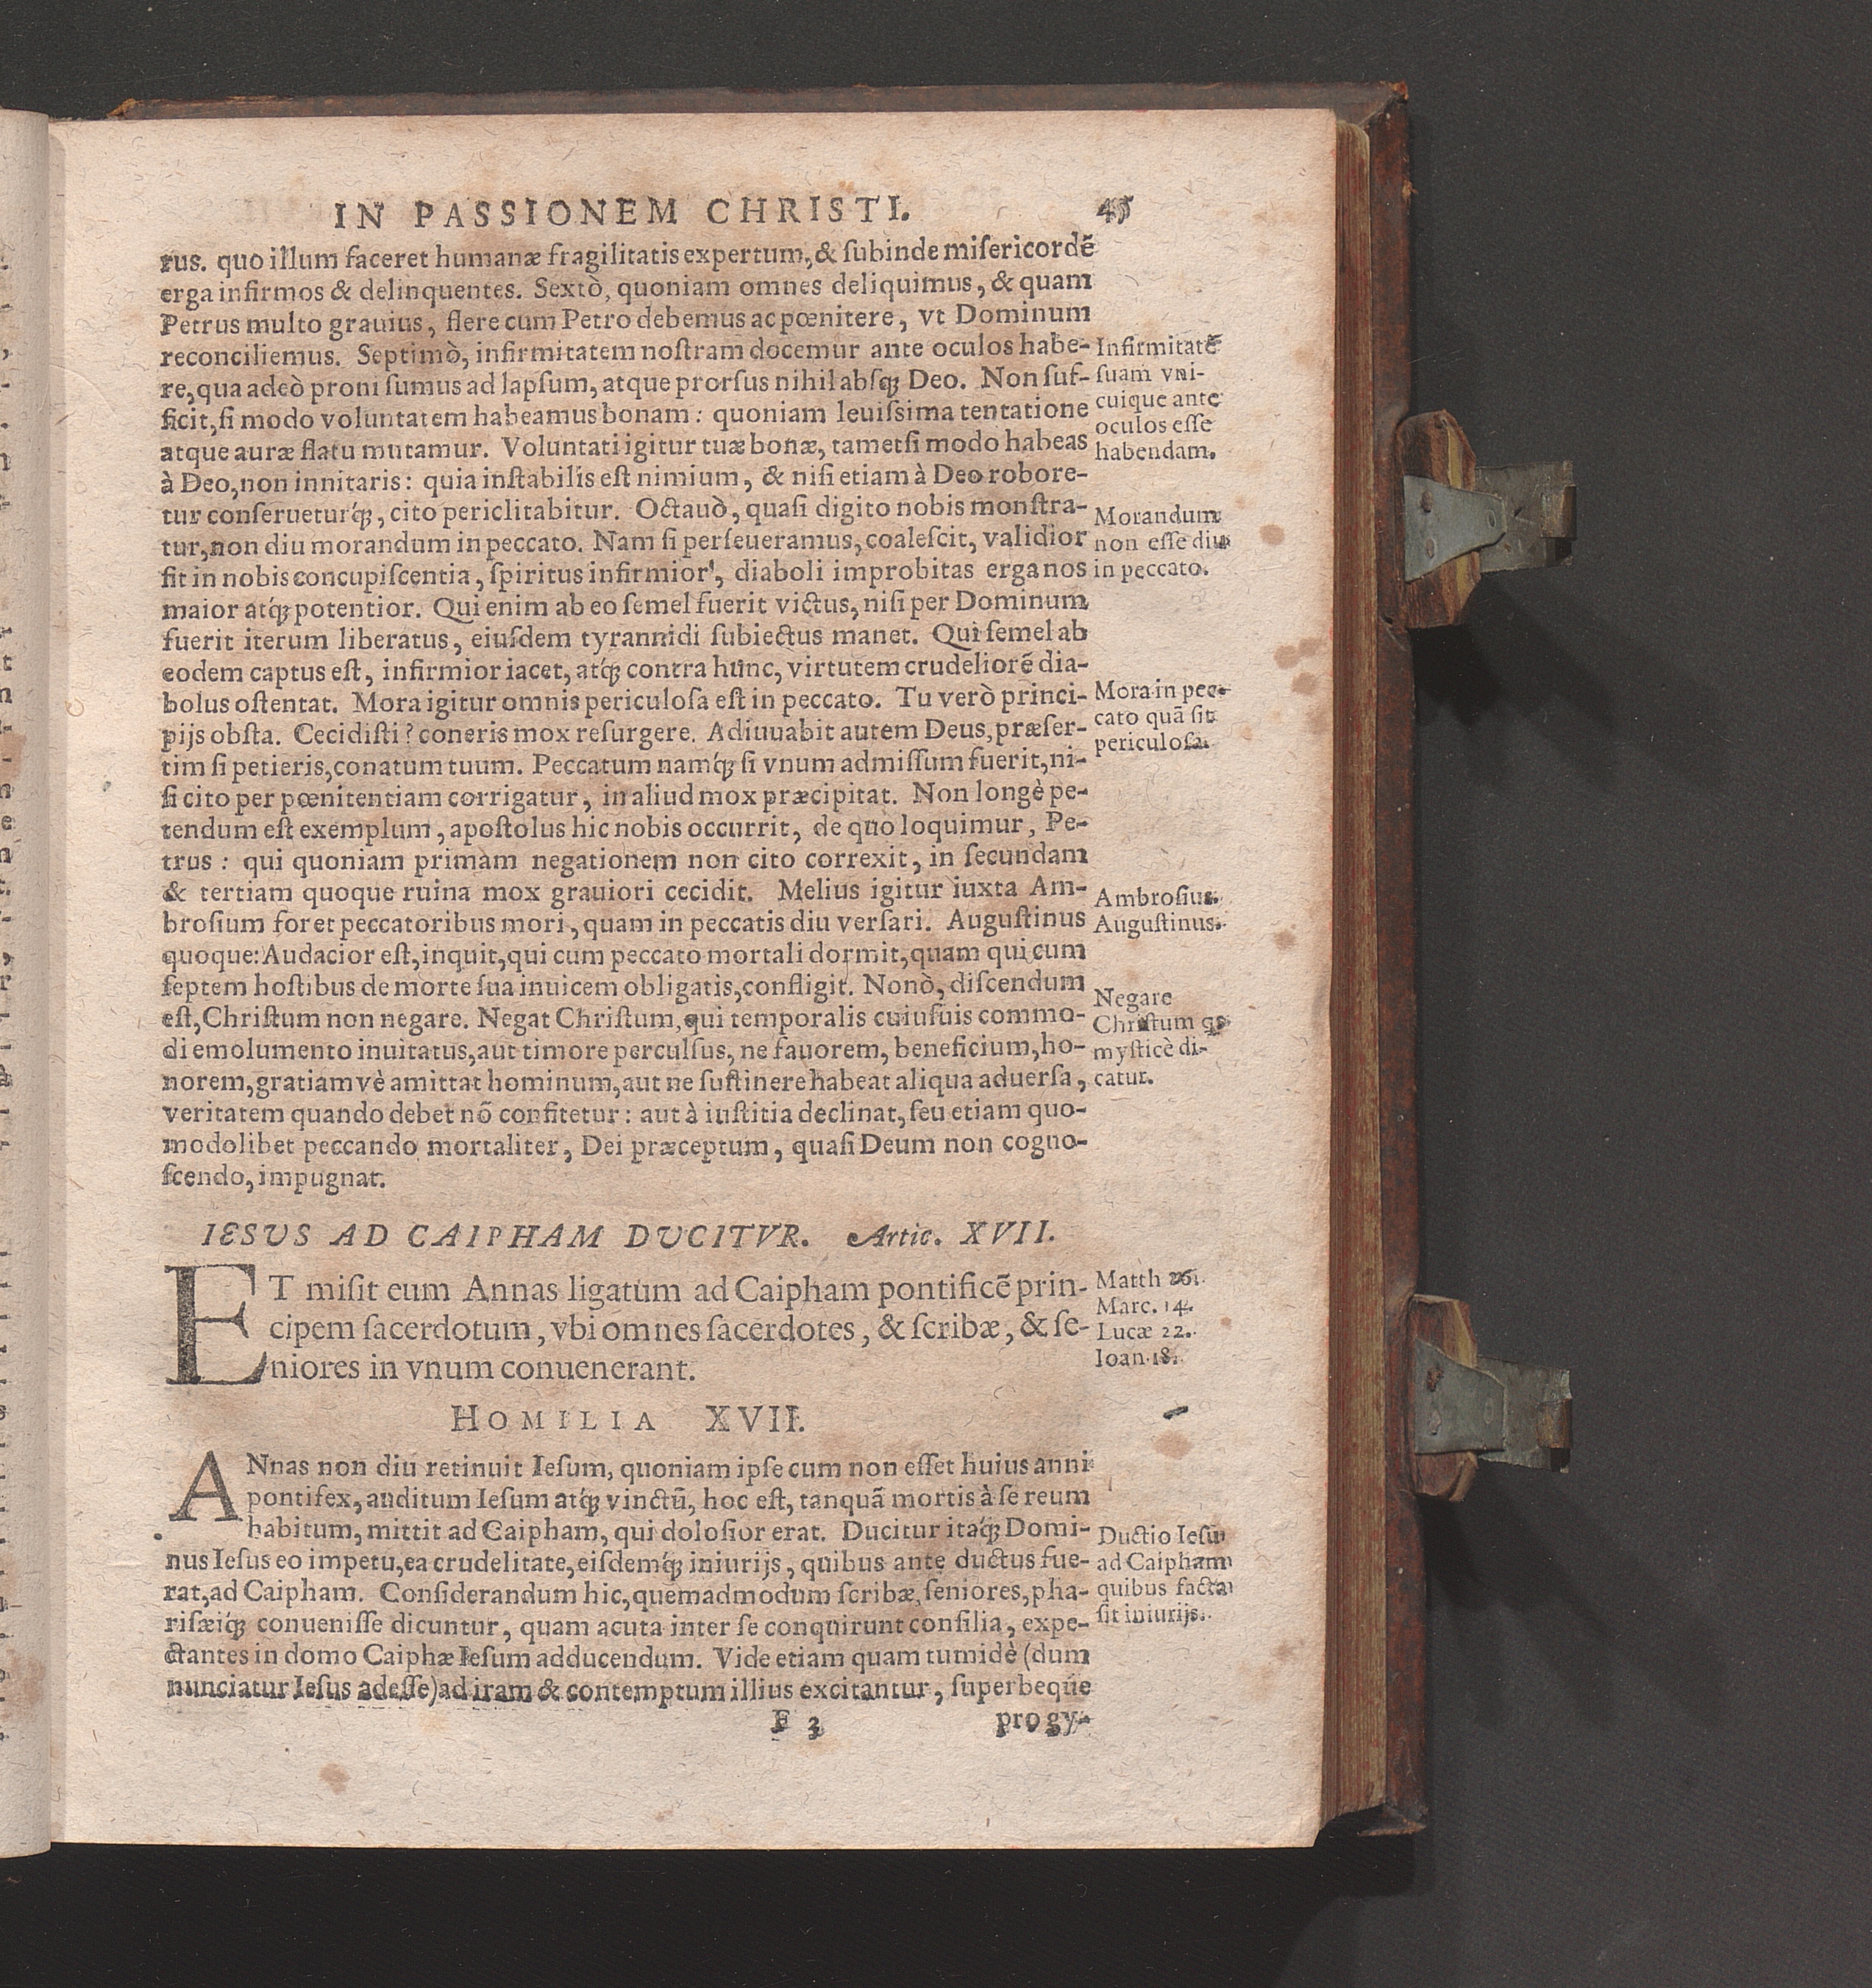 IN PASSIONEM CHRISTI. 45
rus. quo illum faceret humanæ fragilitatis expertum, & ſubinde miſericordẽ
erga infirmos & delinquentes. Sextò, quoniam omnes deliquimus, & quam
Petrus multo grauius, flere cum Petro debemus ac pœnitere, vt Dominum
reconciliemus. Septimò, infirmitatem noſtram docemur ante oculos habe-
re, qua adeò proni ſumus ad lapſum, atque prorſus nihil abſq́; Deo. Non ſuf-
ficit, ſi modo voluntatem habeamus bonam: quoniam leuiſsima tentatione
atque auræ flatu mutamur. Voluntati igitur tuæ bonæ, tametſi modo habeas
à Deo, non innitaris: quia inſtabilis eſt nimium, & niſi etiam à Deo robore-
tur conſerueturq́;, cito periclitabitur. Octauò, quaſi digito nobis monſtra-
tur, non diu morandum in peccato. Nam ſi perſeueramus, coaleſcit, validior
fit in nobis concupiſcentia, ſpiritus infirmior, diaboli improbitas erga nos
maior atq́; potentior. Qui enim ab eo ſemel fuerit victus, niſi per Dominum
fuerit iterum liberatus, eiuſdem tyrannidi ſubiectus manet. Qui ſemel ab
eodem captus eſt, infirmior iacet, atq́; contra hunc, virtutem crudeliorẽ dia-
bolus oſtentat. Mora igitur omnis periculoſa eſt in peccato. Tu verò princi-
pijs obſta. Cecidiſti? coneris mox reſurgere. Adiuuabit autem Deus, præſer-
tim ſi petieris, conatum tuum. Peccatum namq́; ſi vnum admiſſum fuerit, ni-
ſi cito per pœnitentiam corrigatur, in aliud mox præcipitat. Non longè pe-
tendum eſt exemplum, apoſtolus hic nobis occurrit, de quo loquimur, Pe-
trus: qui quoniam primam negationem non cito correxit, in ſecundam
& tertiam quoque ruina mox grauiori cecidit. Melius igitur iuxta Am-
broſium foret peccatoribus mori, quam in peccatis diu verſari. Auguſtinus
quoque: Audacior eſt, inquit, qui cum peccato mortali dormit, quam qui cum
ſeptem hoſtibus de morte ſua inuicem obligatis, confligit. Nonò, diſcendum
eſt, Chriſtum non negare. Negat Chriſtum, qui temporalis cuiuſuis commo-
di emolumento inuitatus, aut timore perculſus, ne fauorem, beneficium, ho-
norem, gratiam vè amittat hominum, aut ne ſuſtinere habeat aliqua aduerſa,
veritatem quando debet nõ confitetur: aut à iuſtitia declinat, ſeu etiam quo-
modolibet peccando mortaliter, Dei præceptum, quaſi Deum non cogno-
ſcendo, impugnat.
Infirmitatẽ
ſuam vni-
cuique ante
oculos eſſe
habendam.
Morandum
non eſſe diu
in peccato.
Mora in pec-
cato quã ſit
periculoſa.
Ambroſius.
Auguſtinus.
Negare
Chriſtum
myſticè di-
catur.
IESVS AD CAIPHAM DVCITVR. Artic. XVII.
ET miſit eum Annas ligatum ad Caipham pontificẽ prin-
cipem ſacerdotum, vbi omnes ſacerdotes, & ſcribæ, & ſe-
niores in vnum conuenerant.
Matth 26.
Marc. 14.
Lucæ 22.
Ioan. 18.
HOMILIA XVII.
ANnas non diu retinuit Ieſum, quoniam ipſe cum non eſſet huius anni
pontifex, auditum Ieſum atq́; vinctũ, hoc eſt, tanquã mortis à ſe reum
habitum, mittit ad Caipham, qui doloſior erat. Ducitur itaq́; Domi-
nus Ieſus eo impetu, ea crudelitate, eiſdemq́; iniurijs, quibus ante ductus fue-
rat, ad Caipham. Conſiderandum hic, quemadmodum ſcribæ, ſeniores, pha-
riſæiq́; conueniſſe dicuntur, quam acuta inter ſe conquirunt conſilia, expe-
ctantes in domo Caiphæ Ieſum adducendum. Vide etiam quam tumidè (dum
nunciatur Ieſus adeſſe) ad iram & contemptum illius excitantur, ſuperbeque
Ductio Ieſu
ad Caipham
quibus facta
ſit iniurijs.
F 3 pro gy-